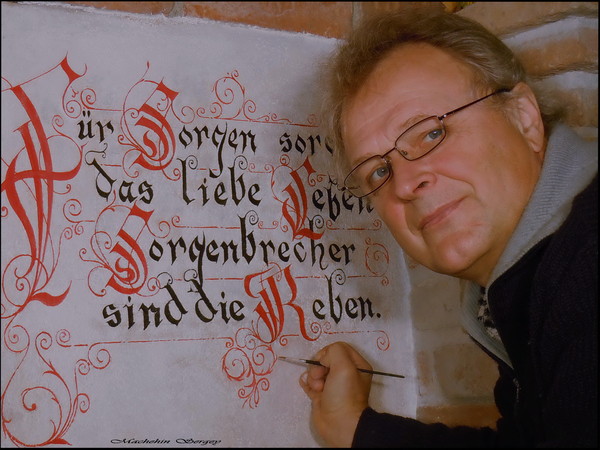 Für Sorgen
das liebe Leben
Sorgenbrecher
sind die Reben.
Machehin Sergey